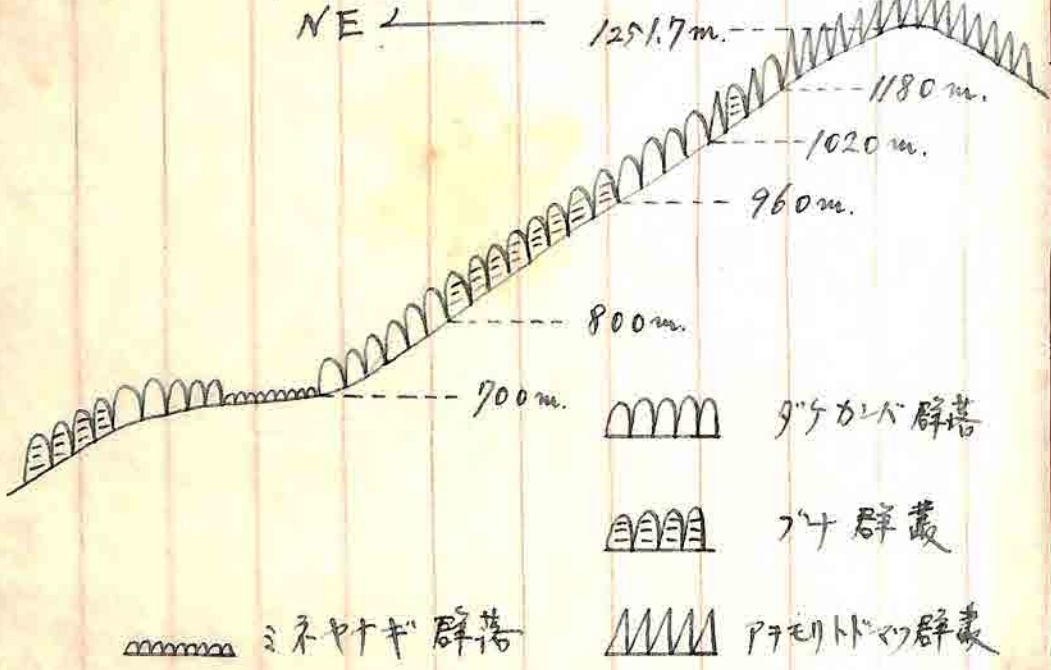 NE
1251.7m.
1180m.
1020m.
960m.
800m.
700m.
ダケカンバ群落
ブナ群叢
ミネヤナギ群落
アオモリトドマツ群叢